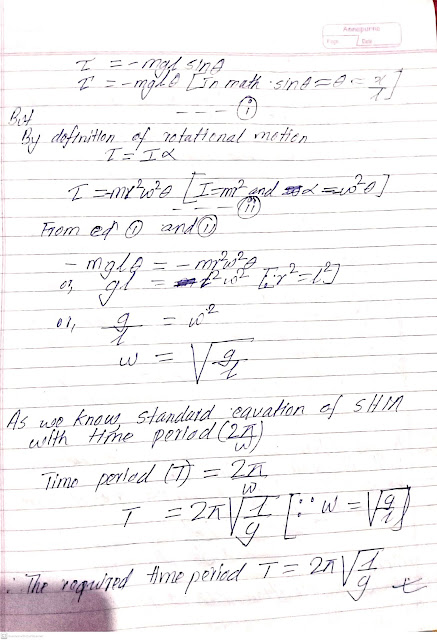 Annapurna
Page
Date
τ = -mgl sinθ
τ = -mglθ [In math sinθ = θ = x/l]
- - - (i)
But
By defnition of rotational motion
τ = Iα
τ = mr²ω²θ [I = mr² and α = ω²θ]
- - - (ii)
From eqn (i) and (ii)
- mglθ = - mr²ω²θ
or, gl = l²ω² [∵ r² = l²]
or, g/l = ω²
ω = √g/l
As we know, standard equation of SHM
with time period (2π/ω)
Time period (T) = 2π/ω
T = 2π√l/g [∵ ω = √g/l]
∴ The required time period T = 2π√l/g